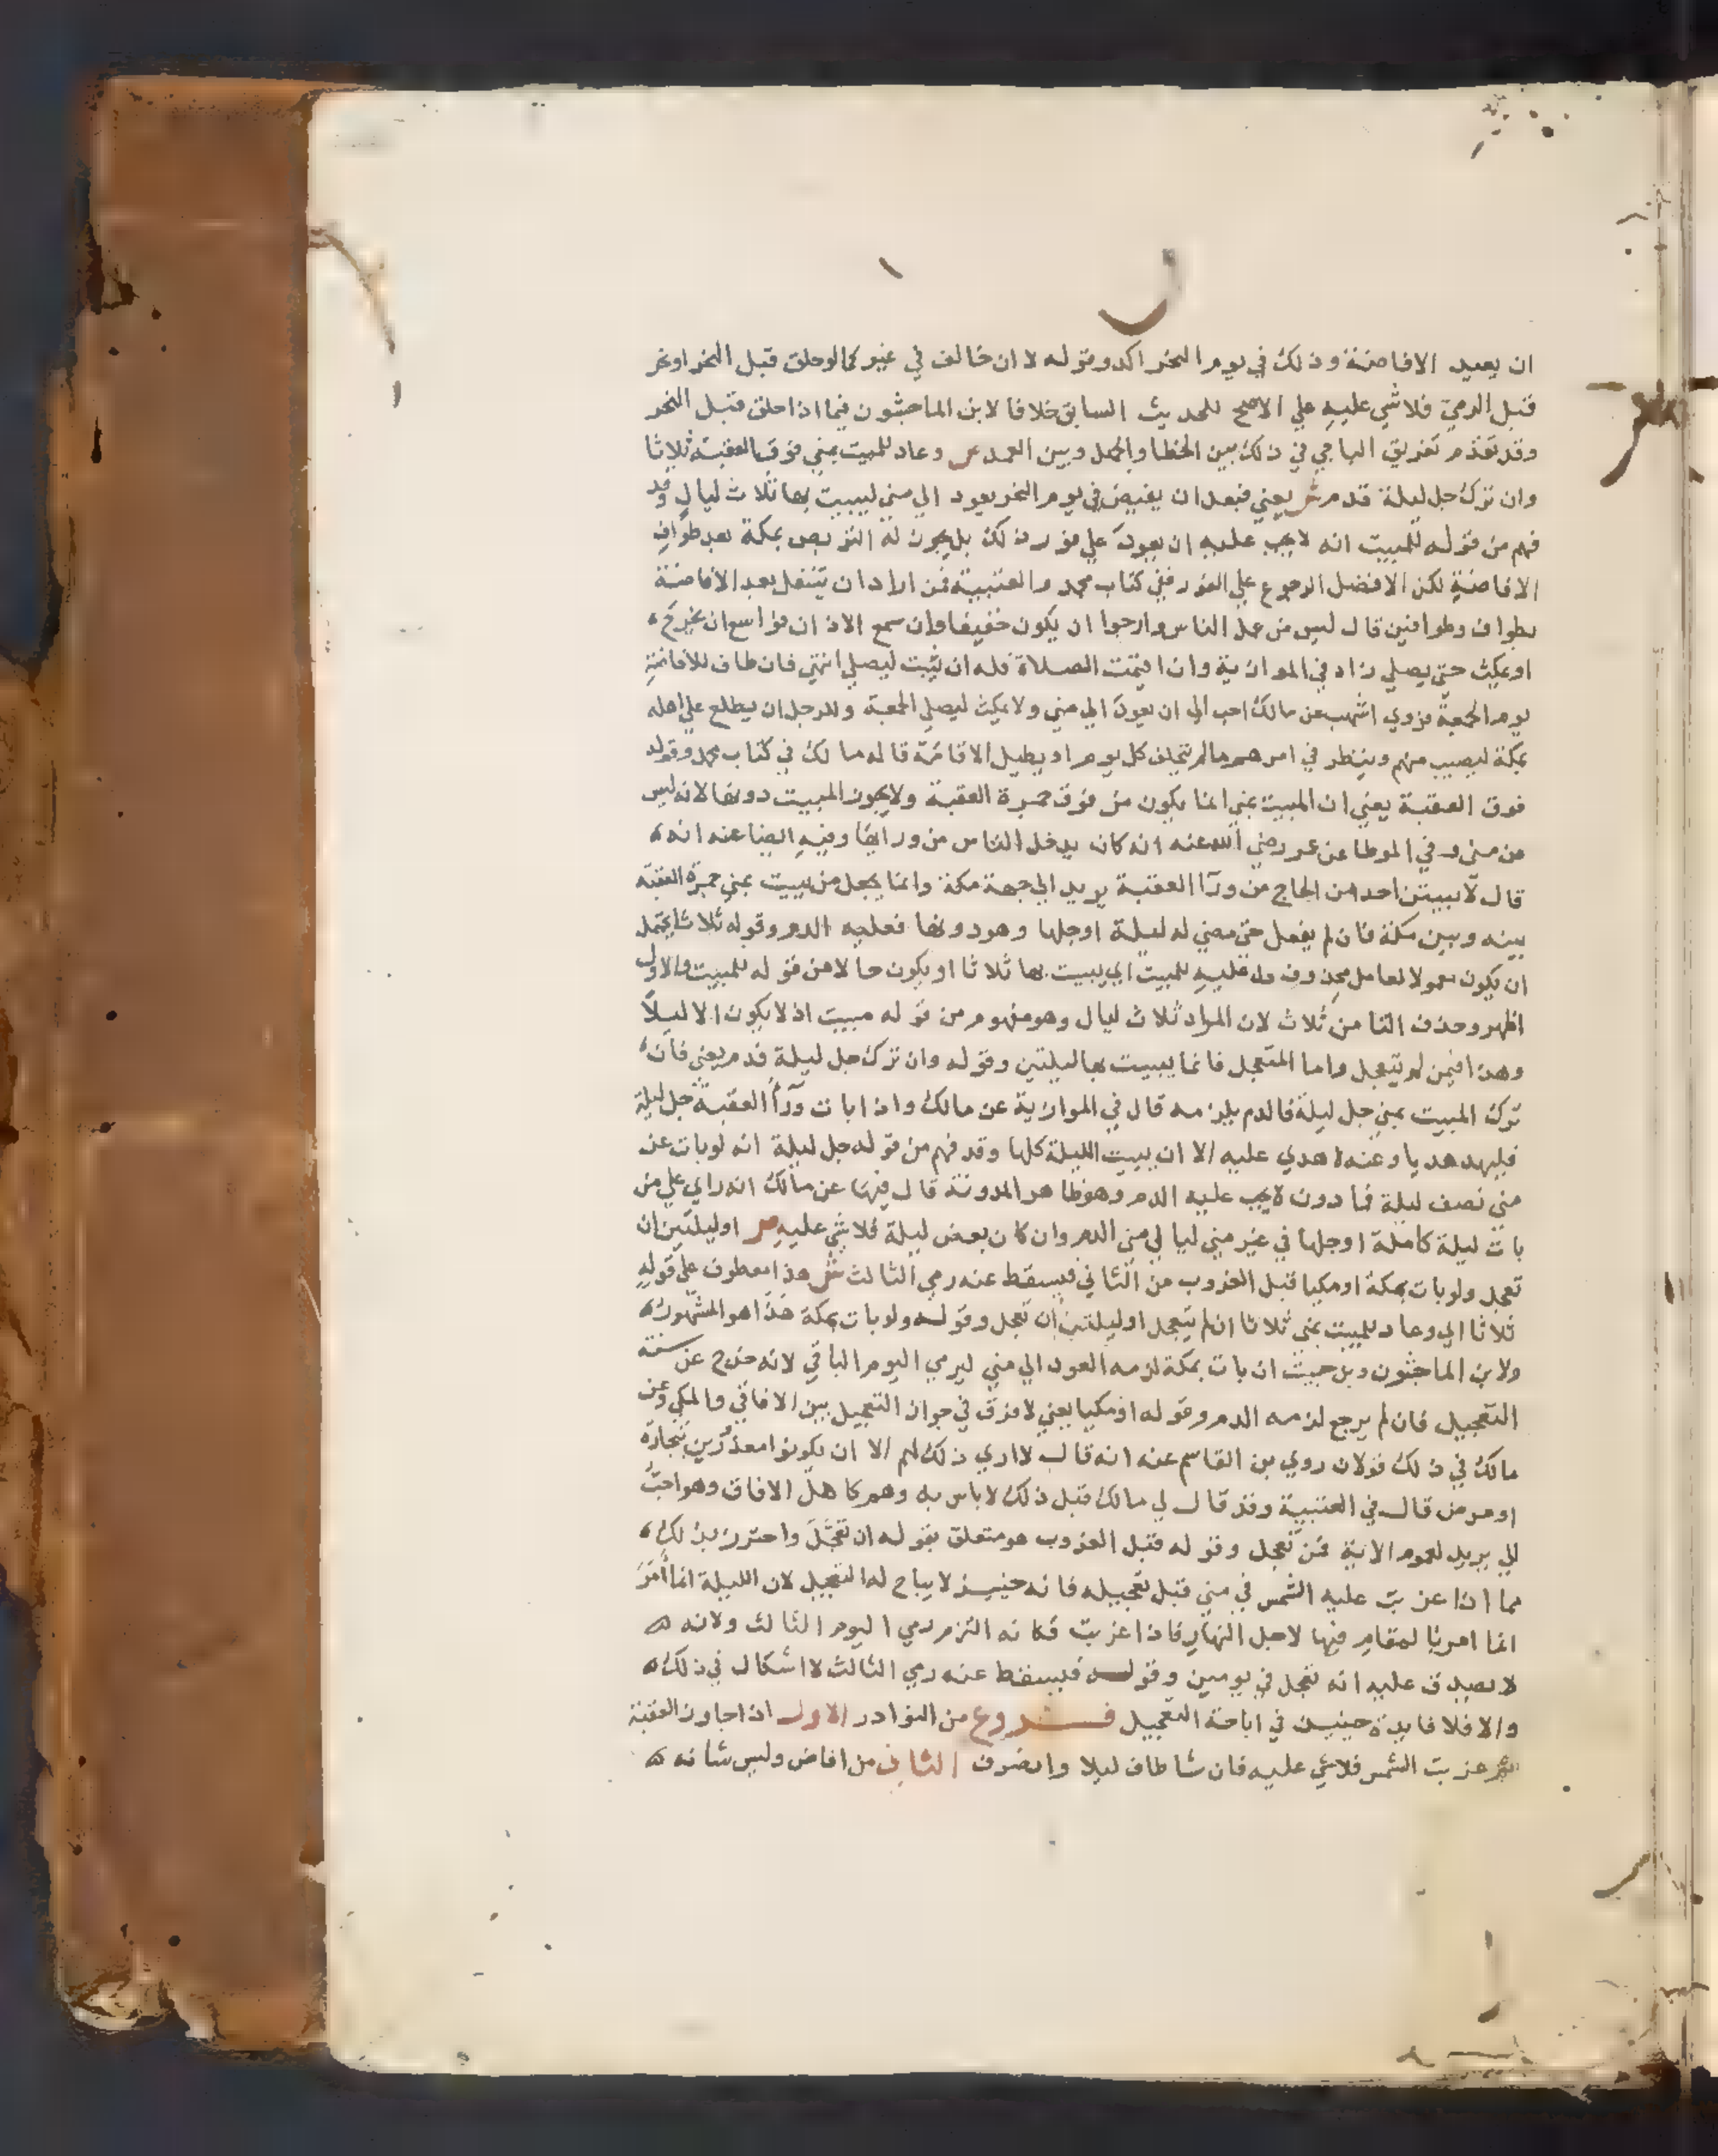 ان يعيد الافاضة وذلك في يوم النحر اكد وقوله لا ان خالف في غير كما لو حلق قبل النحر او نحر
قبل الرمي فلا شي عليه علي الاصح للحديث السابق خلافا لابن الماجشون فيما اذا حلق قبل النحر
وقد تقدم تفريق الباجي في ذلك بين الخطا والجهل وبين العمد ص وعاد للمبيت بمني فوق العقبة ثلاثا
وان ترك جل ليلة فدم ش يعني فبعد ان يفيض في يوم النحر يعود الي مني ليبيت بها ثلاث ليال وقد
فهم من قوله للمبيت انه لا يجب عليه ان يعود علي فور ذلك بل يجوز له التربص بمكة بعد طواف
الافاضة لكن الافضل الرجوع علي الفور ففي كتاب محمد والعتبية فمن اراد ان يتنفل بعد الافاضة
بطواف وطوافين قال ليس من عمل الناس وارجوا ان يكون خفيفا وان سمع الاذان فواسع ان يخرج
او يمكث حتي يصلي زاد في الموازية وان اقيمت الصلاة فله ان يثبت ليصلي انتهي فان طاف للافاضة
يوم الجمعة فروي اشهب عن مالك احب الي ان يعود الي مني ولا يمكث ليصلي الجمعة وللرجل ان يطلع علي اهله
بمكة ليصيب منهم وينظر في امرهم ما لم يتخلف كل يوم او يطيل الاقامة قاله مالك في كتاب محمد وقوله
فوق العقبة يعني ان المبيت بمني انما يكون من فوق جمرة العقبة ولا يجوز المبيت دونها لانه ليس
من مني وفي الموطا عن عمر رضي الله عنه انه كان يدخل الناس من ورايها وفيه ايضا عنه انه
قال لا يبيتن احد من الحاج من ورآ العقبة يريد الي جهة مكة وانما يجعل من يبيت بمني جمرة العقبة
بينه وبين مكة فان لم يفعل حتي مضي له ليلة او جلها وهو دونها فعليه الدم وقوله ثلاثا يحتمل
ان يكون معمولا لعامل محذوف دل عليه للمبيت اي يبيت بها ثلاثا او يكون حالا من قوله للمبيت والاول
اظهر وحذف التا من ثلاث لان المراد ثلاث ليال وهو مفهوم من قوله مبيت اذ لا يكون الا ليلا
وهذا فيمن لم يتعجل واما المتعجل فانما يبيت بها ليلتين وقوله وان ترك جل ليلة فدم يعني فان
ترك المبيت بمني جل ليلة فالدم يلزمه قال في الموازية عن مالك واذا بات ورآ العقبة جل ليلة
فليهد هديا وعنه لا هدي عليه الا ان يبيت الليلة كلها وقد فهم من قوله جل ليلة انه لو بات عن
مني نصف ليلة فما دون لا يجب عليه الدم وهو ظاهر المدونة قال فيها عن مالك انه راي علي من
بات ليلة كاملة او جلها في غير مني ليالي مني الدم وان كان بعض ليلة فلا شي عليه ص او ليلتين ان
تعجل ولو بات بمكة او مكيا قبل الغروب من الثاني فيسقط عنه رمي الثالث ش هذا معطوف علي قوله
ثلاثا اي وعاد للمبيت بمني ثلاثا ان لم يتعجل او ليلتين ان تعجل وقوله ولو بات بمكة هذا هو المشهور
ولابن الماجشون وبن حبيب ان بات بمكة لزمه العود الي مني ليرمي اليوم الباقي لانه خرج عن سنة
التعجيل فان لم يرجع لزمه الدم وقوله او مكيا يعني لا فرق في جواز التعجيل بين الافاقي والمكي وعن
مالك في ذلك قولان روي بن القاسم عنه انه قال لا اري ذلك لهم الا ان يكونوا معذورين بتجارة
او مرض قال في العتبية وقد قال لي مالك قبل ذلك لا باس به وهم كاهل الافاق وهو احب
الي يريد لعموم الاية فمن تعجل وقوله قبل الغروب هو متعلق بقوله ان تعجل واحترز بذلك
مما اذا غربت عليه الشمس في مني قبل تعجيله فانه حينيذ لا يباح له التعجيل لان الليلة انما أُمِرَ
انما امر بالمقام فيها لاجل النهار فاذا غربت فكانه التزم رمي اليوم الثالث ولانه
لا يصدق عليه انه تعجل في يومين وقوله فيسقط عنه رمي الثالث لا اشكال في ذلك
والا فلا فايدة حينيذ في اباحة التعجيل فــروع من النوادر الاول اذا جاوز العقبة
ثم غربت الشمس فلا شي عليه فان شا طاف ليلا وانصرف الثاني من افاض وليس شانه